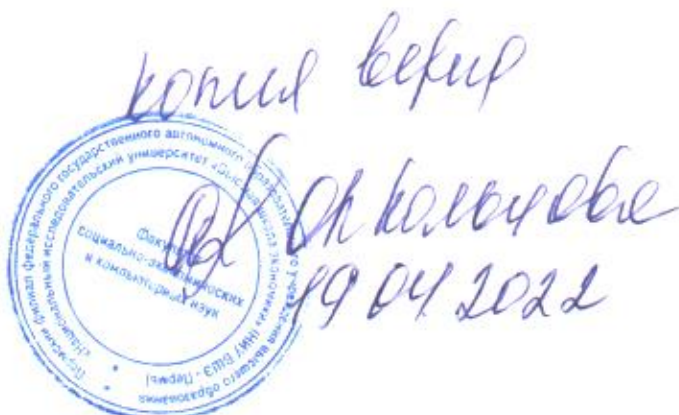 копия верна
Пермский филиал федерального государственного автономного образовательного учреждения высшего образования
«Национальный исследовательский университет «Высшая школа экономики» (НИУ ВШЭ - Пермь)
Факультет
социально-экономических
и компьютерных наук
19 04 2022